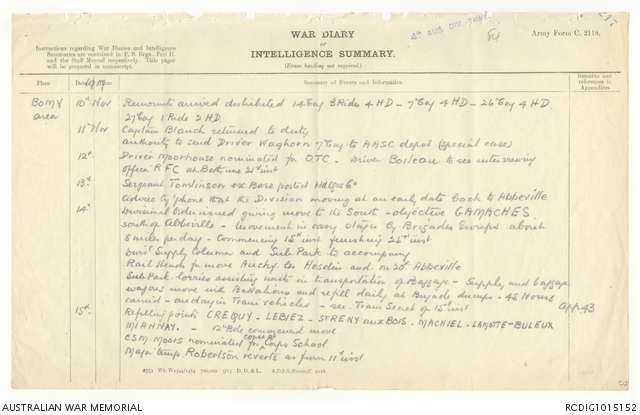 WAR DIARY
or
INTELLIGENCE SUMMARY.
(Erase heading not required.)
4TH AUS. DIV. TRAIN
Army Form C. 2118.
Instructions regarding War Diaries and Intelligence
Summaries are contained in F. S. Regs., Part II.
and the Staff Manual respectively. Title pages
will be prepared in manuscript.
Place
Date
Summary of Events and Information
Remarks and
references to
Appendices
BOMY
area
10th Nov
Remounts arrived distributed 14 Coy 3 Rides 4 HD - 7th Coy 4 HD - 26 Coy 4 HD
27 Coy 1 Ride 2 HD
11th Nov
Captain Blanch returned to duty
authority to send Driver Waghorn 7th Coy to AASC depot (special case)
12th
Driver Moorhouse nominated for OTC - Driver Boileau to see interviewing
officer RFC at Bethune 21st inst
13th
Sergeant Tomlinson ex Base posted Hdqrs Co
Advice by 'phone that the Division moving at an early date back to Abbeville
14th
Divisional Order issued giving move to the South - objective GAMACHES
south of Abbeville - movement in easy stages by Brigade Groups about
8 miles per day - Commencing 15th inst finishing 26th inst
Divnl Supply Column and Sub Park to accompany
Rail Heads for move Auchy les Hesdin and on 20th Abbeville
Sub Park lorries assisting units in transportation of Baggage - Supply and baggage
wagons move with Battalions and refill daily at Brigade dumps - 48 Hours
carried - one day in Train vehicles - see Train Secret of 15th inst
App. 43
15th
Refilling points CREQUY - LEBIEZ - ST RENY aux BOIS - MACHIEL - LAMOTTE-BULEUX
MIANNAY. - 12th Bde commenced move
CSM Moors nominated for Corps School
Major temp. Robertson reverts as from 11th inst
A.D.S.S./Forms/C. 2118.
AUSTRALIAN WAR MEMORIAL
RCDIG1015152